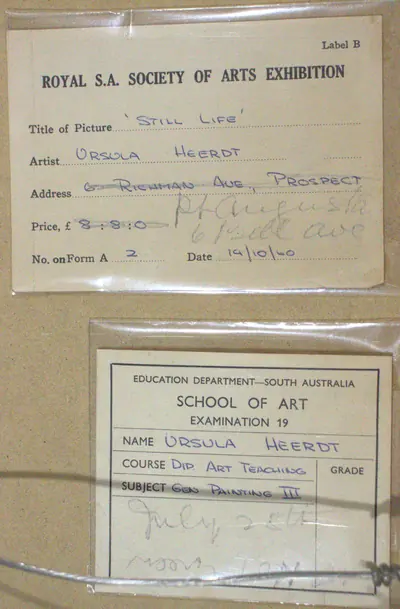 Label B
ROYAL S.A. SOCIETY OF ARTS EXHIBITION
Title of Picture 'STILL LIFE'
Artist URSULA HEERDT
Address 6 RICHMAN AVE., PROSPECT
Pt Augusta
Price, £ 8:8:0
Ave
No. on Form A 2 Date 19/10/60
EDUCATION DEPARTMENT—SOUTH AUSTRALIA
SCHOOL OF ART
EXAMINATION 19
NAME URSULA HEERDT
COURSE DIP. ART TEACHING GRADE
SUBJECT GEN PAINTING III
July 28th